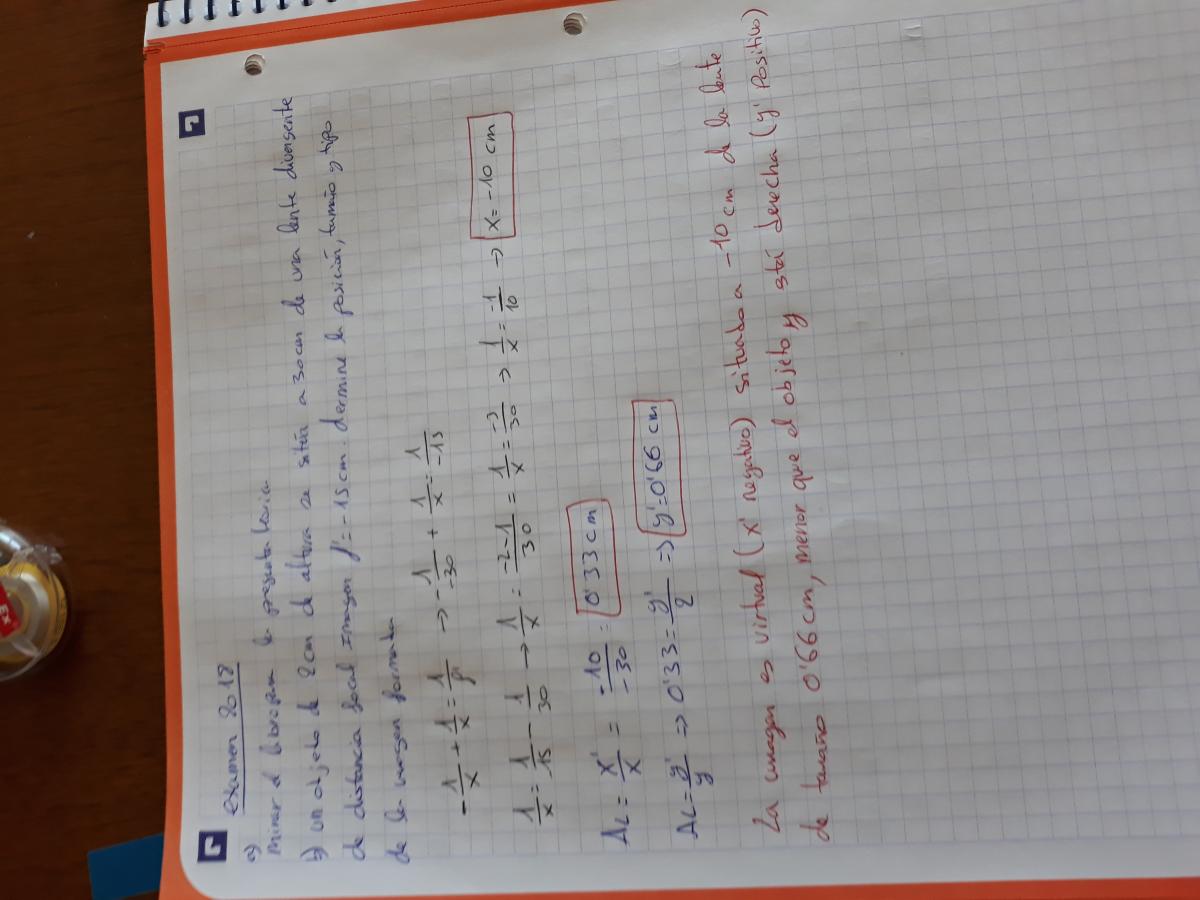 Examen 2018
a)
Mirar el libro para la pregunta teoria
b) un objeto de 2cm de altura se sitúa a 30cm de una lente divergente
de distancia focal imagen f'=-15cm. dermine la posición, tamaño y tipo
de la imagen formada
-1/x + 1/x = 1/f' → -1/-30 + 1/x = 1/-15
1/x = 1/-15 - 1/30 → 1/x = -2-1/30 = 1/x = -3/30 → 1/x = -1/10 → x = -10 cm
AL = x'/x = -10/-30 = 0'33 cm
AL = y'/y => 0'33 = y'/2 => y' = 0'66 cm
La imagen es virtual (x' negativo) situado a -10 cm de la lente
de tamaño 0'66 cm, menor que el objeto y stá derecha (y' Positivo)
EX